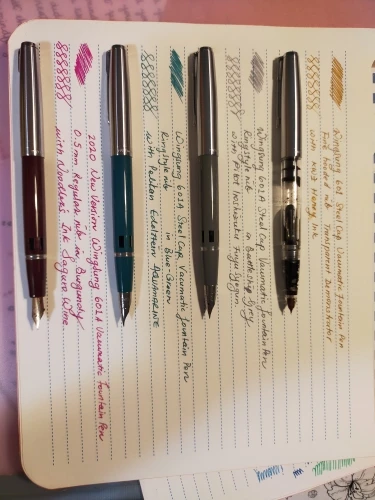 2020 New Version Wingsung 601A Vacumatic Fountain Pen
0.5mm Regular nib in Burgundy
with Noodlers Ink Saguaro Wine
Wingsung 601A Steel Cap Vacumatic Fountain Pen
Ringstyle nib in Blue-Green
with Pelikan Edelstein AQUAMARINE
Wingsung 601A Steel Cap Vacumatic Fountain Pen
Ringstyle nib in Battleship Grey
with Pilot Iroshizuku Fuyu Syogun
Wingsung 601 Steel Cap Vacumatic Fountain Pen
Fine hooded nib Transparent Demonstrator
with KWZ Honey Ink